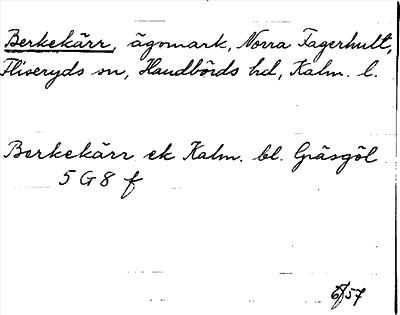 Berkekärr, ägomark, Norra Fagerhult,
Fliseryds sn, Handbörds hd, Kalm. l.
Berkekärr ek Kalm. bl. Gräsgöl
5 G 8 f
6/57